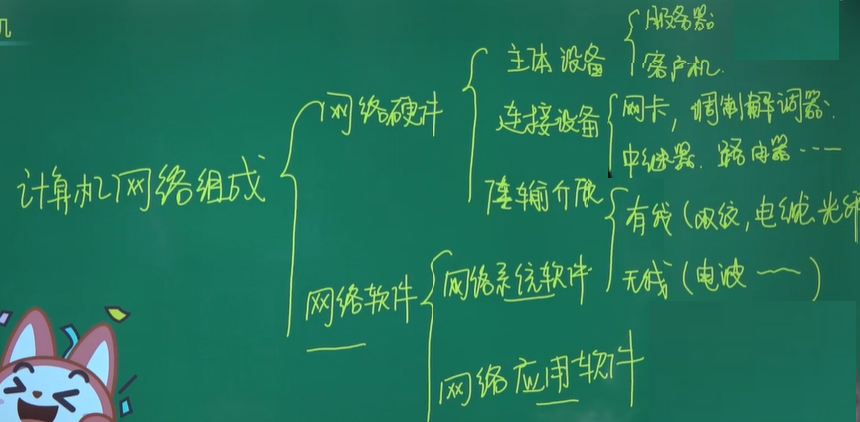 机
计算机网络组成
网络硬件
主体设备
服务器
客户机
连接设备
网卡，调制解调器
中继器、路由器……
传输介质
有线（双绞，电缆、光纤
无线（电波……）
网络软件
网络系统软件
网络应用软件